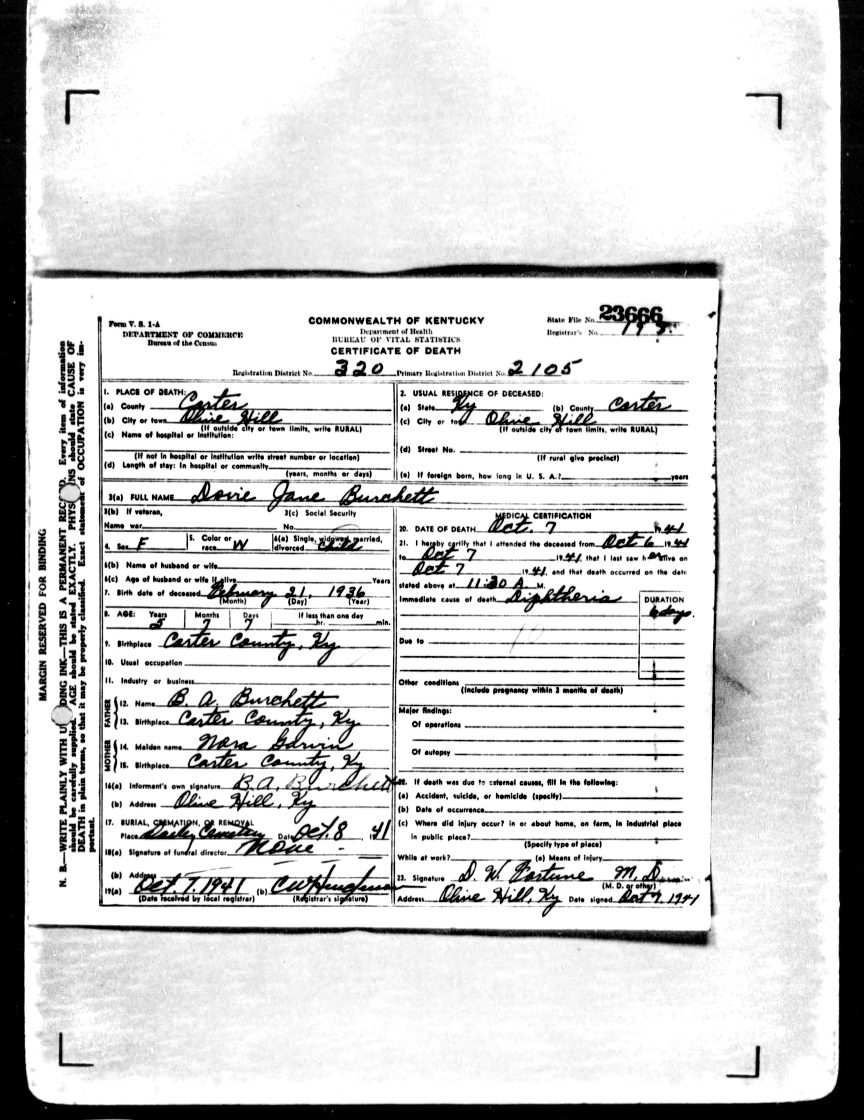 MARGIN RESERVED FOR BINDING
N. B.—WRITE PLAINLY WITH DING INK—THIS IS A PERMANENT Every item of information
should be carefully supplied. AGE should be stated EXACTLY. should state CAUSE OF
DEATH in plain terms, so that it may be properly classified. Exact of OCCUPATION is very im-
portant.
Form V. S. 1-A
DEPARTMENT OF COMMERCE
Bureau of the Census
COMMONWEALTH OF KENTUCKY
Department of Health
BUREAU OF VITAL STATISTICS
CERTIFICATE OF DEATH
State File No. 23666
Registrar's No.
Registration District No. 320 Primary Registration District No. 2105
1. PLACE OF DEATH:
(a) County Carter
(b) City or town Olive Hill
(If outside city or town limits, write RURAL)
(c) Name of hospital or institution:
(If not in hospital or institution write street number or location)
(d) Length of stay: In hospital or community
(years, months or days)
2. USUAL RESIDENCE OF DECEASED:
(a) State Ky (b) County Carter
(c) City or town Olive Hill
(If outside city or town limits, write RURAL)
(d) Street No.
(If rural give precinct)
(e) If foreign born, how long in U. S. A.? years
3(a) FULL NAME Dovie Jane Burchett
3(b) If veteran, 3(c) Social Security
Name war No.
4. Sex F 5. Color or race W 6(a) Single, widowed, married, divorced Child
6(b) Name of husband or wife
6(c) Age of husband or wife if alive Years
7. Birth date of deceased February 21, 1936
(Month) (Day) (Year)
8. AGE: Years Months Days If less than one day
5 7 7 hr. min.
9. Birthplace Carter County, Ky
10. Usual occupation
11. Industry or business
FATHER
12. Name B. A. Burchett
13. Birthplace Carter County, Ky
MOTHER
14. Maiden name Nora Garvin
15. Birthplace Carter County, Ky
16(a) Informant's own signature B. A. Burchett
(b) Address Olive Hill, Ky
17. BURIAL, CREMATION, OR REMOVAL
Place Cemetery Date Oct. 8 41
18(a) Signature of funeral director None
(b) Address
19(a) Oct. 7, 1941 (b)
(Date received by local registrar) (Registrar's signature)
MEDICAL CERTIFICATION
20. DATE OF DEATH Oct. 7 1941
21. I hereby certify that I attended the deceased from Oct 6 1941
to Oct 7 1941, that I last saw her alive on
Oct 7 1941 and that death occurred on the date
stated above at 11:30 A. M.
Immediate cause of death Diphtheria
DURATION
6 days.
Due to
Other conditions
(Include pregnancy within 3 months of death)
Major findings:
Of operations
Of autopsy
22. If death was due to external causes, fill in the following:
(a) Accident, suicide, or homicide (specify)
(b) Date of occurrence
(c) Where did injury occur? in or about home, on farm, in industrial place
in public place?
(Specify type of place)
While at work? (e) Means of injury
23. Signature D. W. Fortune M. D.
(M. D. or other)
Address Olive Hill, Ky Date signed Oct 7, 1941